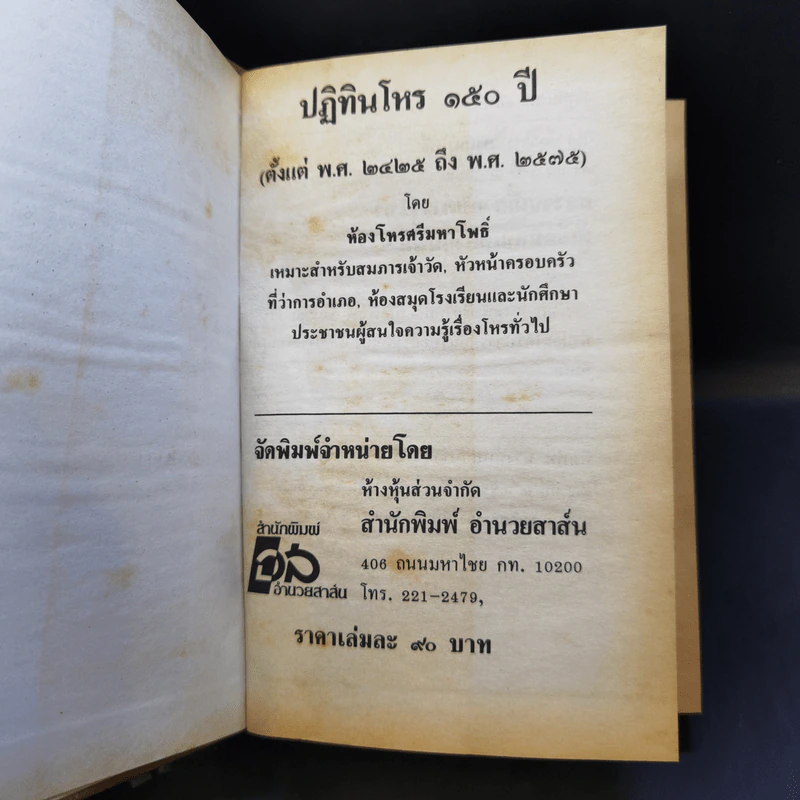 ปฏิทินโหร ๑๕๐ ปี
(ตั้งแต่ พ.ศ. ๒๔๒๕ ถึง พ.ศ. ๒๕๗๕)
โดย
ห้องโหรศรีมหาโพธิ์
เหมาะสำหรับสมภารเจ้าวัด, หัวหน้าครอบครัว
ที่ว่าการอำเภอ, ห้องสมุดโรงเรียนและนักศึกษา
ประชาชนผู้สนใจความรู้เรื่องโหรทั่วไป
จัดพิมพ์จำหน่ายโดย
ห้างหุ้นส่วนจำกัด
สำนักพิมพ์ อำนวยสาส์น
406 ถนนมหาไชย กท. 10200
โทร. 221-2479,
สำนักพิมพ์
อส
อำนวยสาส์น
ราคาเล่มละ ๙๐ บาท